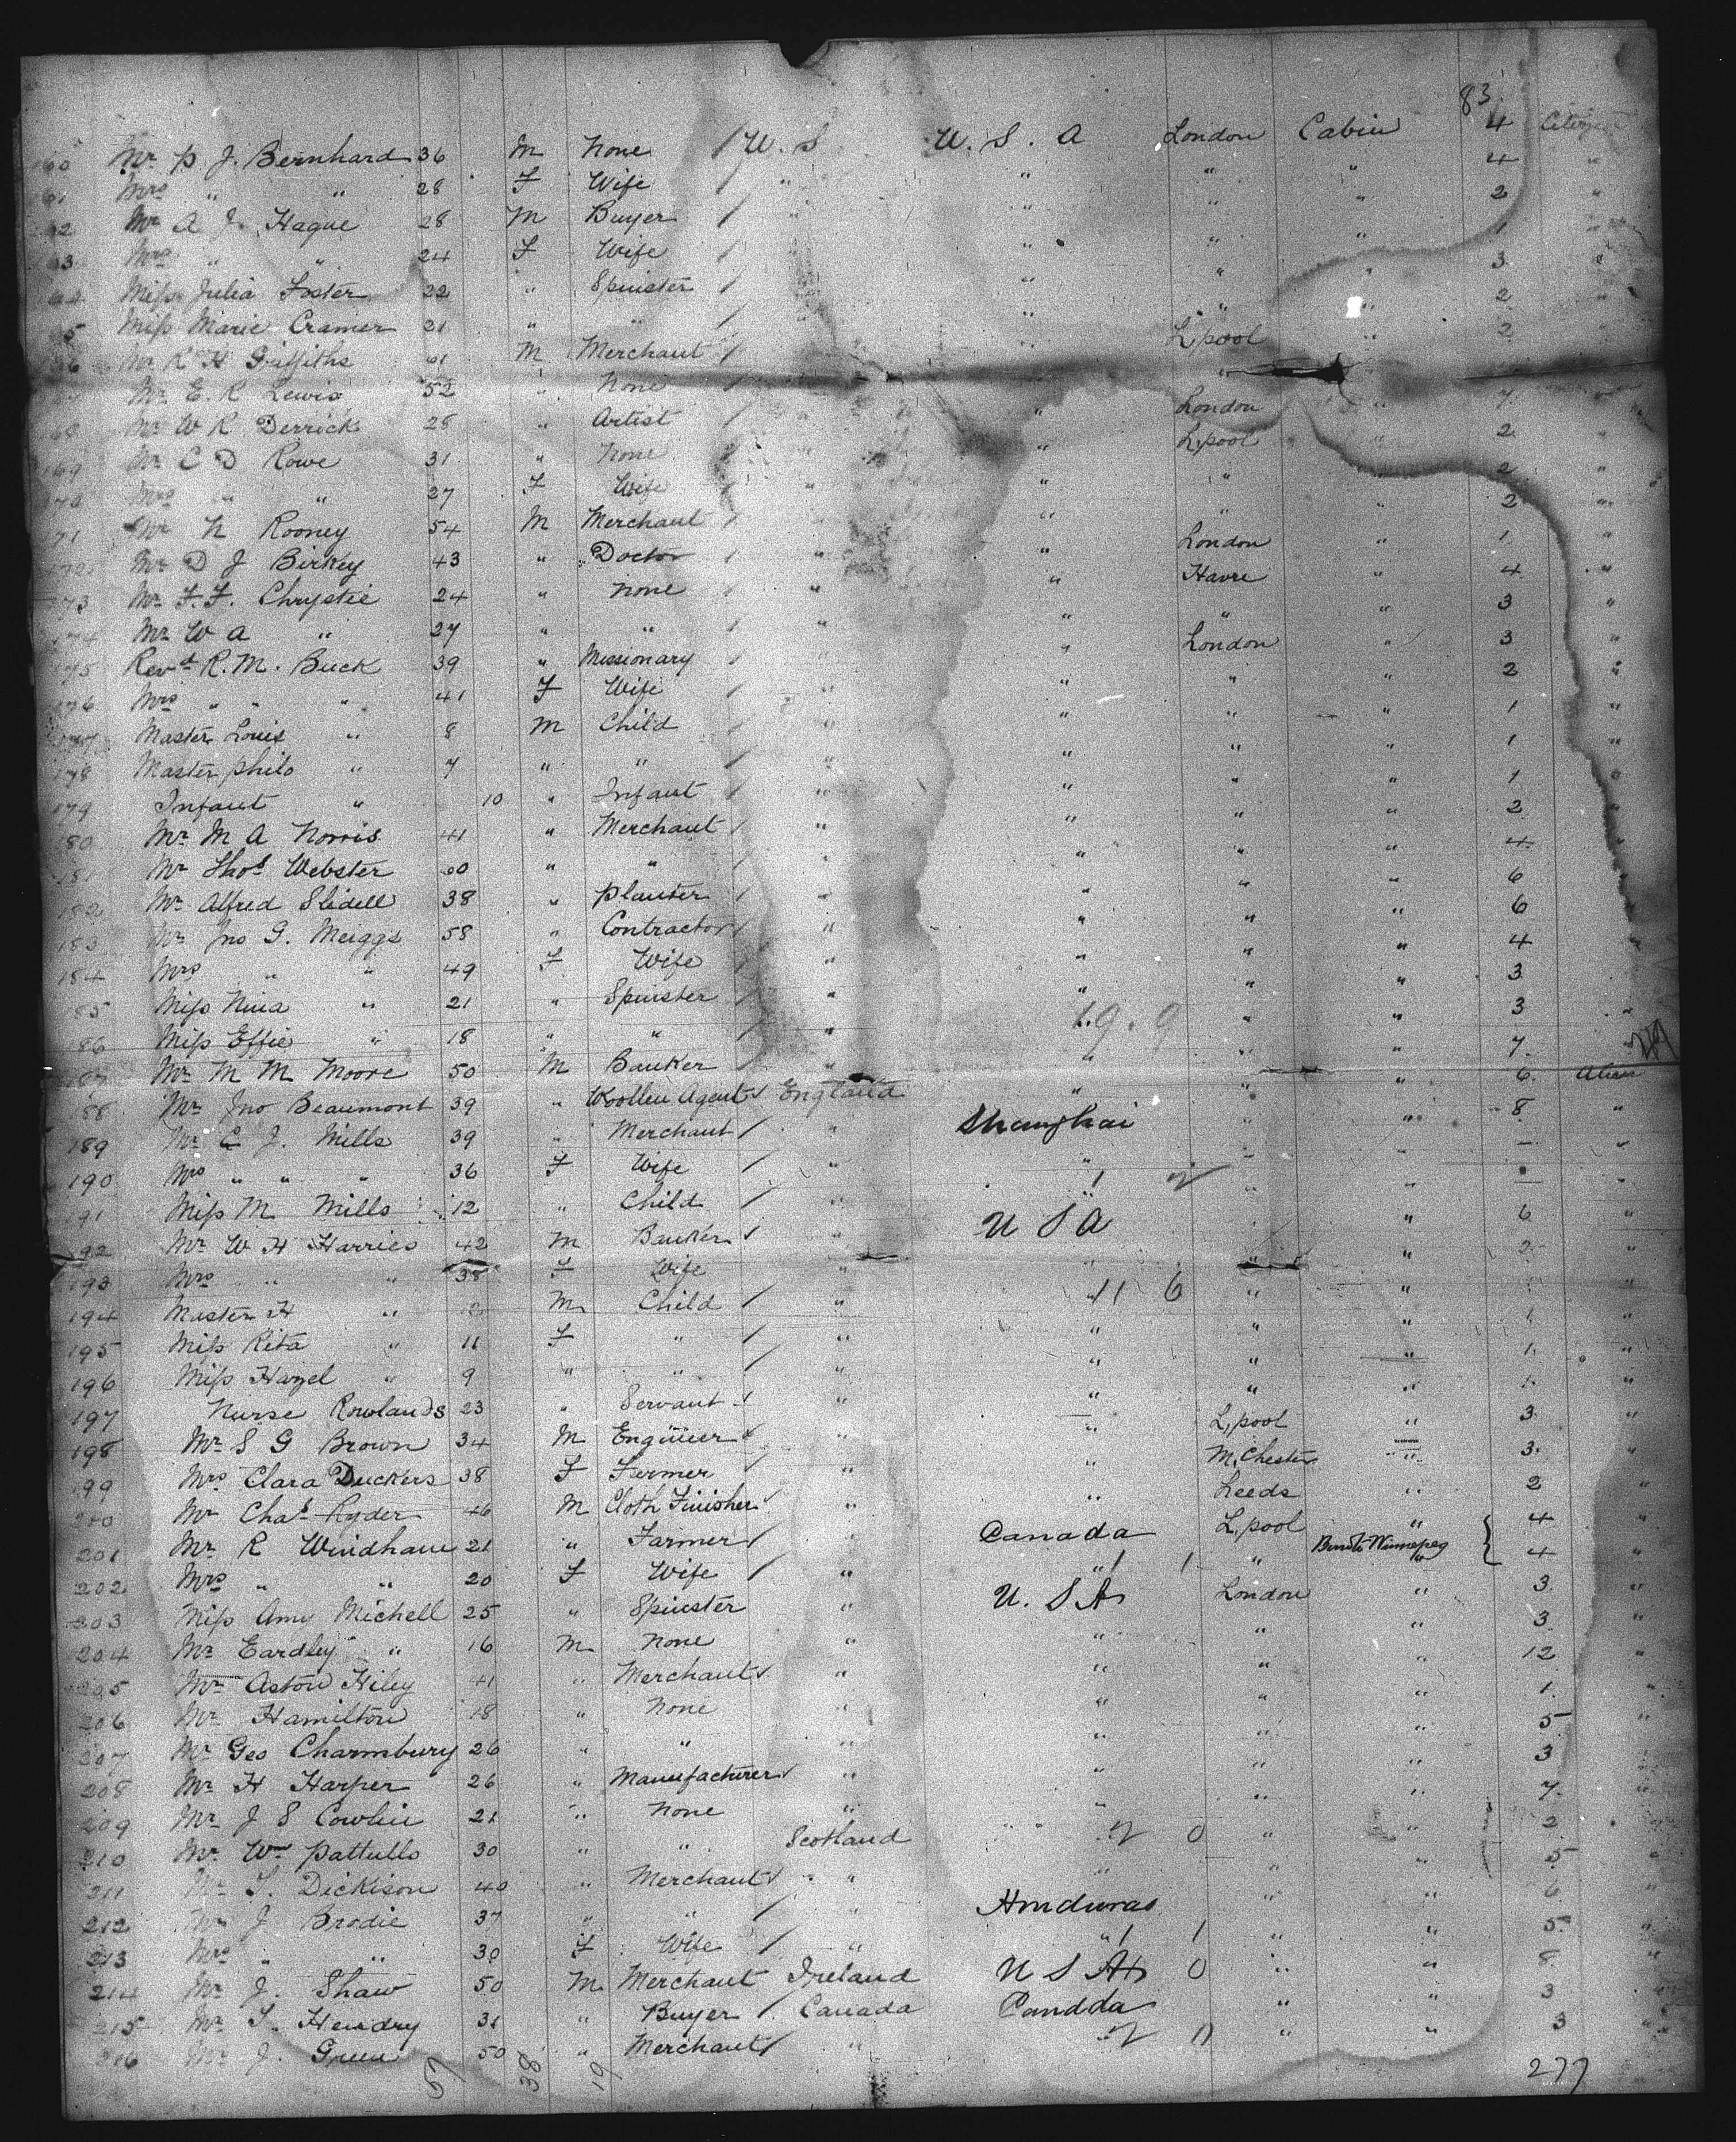 83.
160 Mr P J. Bernhard 36 M None / U. S U. S. A London Cabin 4 Citizen
61 Mrs " " 28 F Wife / " " " " 4 "
62 Mr A J. Hague 28 M Buyer / " " " " 2 "
63 Mrs " " 24 F Wife / " " " " 1 "
64 Miss Julia Foster 22 " Spinster / " " " " 3 "
65 Miss Marie Cramer 21 " " / " " " " 2 "
66 Mr R H Griffiths 61 M Merchant / " " L,pool " 2 "
67 Mr E. R Lewis 52 " None / " " " "
168 Mr W R Derrick 28 " Artist / " " London " 7 "
169 Mr C D Rowe 31 " None / " " L,pool " 2 "
170 Mrs " " 27 F Wife / " " " " 2 "
171 Mr N Rooney 54 M Merchant / " " " " 2 "
172 Mr D J Birkey 43 " Doctor / " " London " 1 "
173 Mr F. F. Chrystie 24 " None / " " Havre " 4 "
174 Mr W A " 27 " " / " " " " 3 "
175 Revd R. M. Buck 39 " Missionary / " " London " 3 "
176 Mrs " " " 41 F Wife / " " " " 2 "
177 Master Louis " 8 M Child / " " " " 1 "
178 Master Philo " 7 " " / " " " " 1 "
179 Infant " 10 " Infant / " " " " 1 "
180 Mr M A Norris 41 " Merchant / " " " " 2 "
181 Mr Thos Webster 60 " " / " " " " 4 "
182 Mr Alfred Slidell 38 " Planter / " " " " 6 "
183 Mr Jno G. Meiggs 58 " Contractor / " " " " 6 "
184 Mrs " " 49 F Wife / " " " " 4 "
185 Miss Nina " 21 " Spinster / " " " " 3 "
186 Miss Effie " 18 " " / " 19. 9 " " 3 "
187 Mr M M Moore 50 M Banker / " " " " 7 "
188 Mr Jno Beaumont 39 " Woollen Agent / England " " " 6 Alien
189 Mr E J. Mills 39 " Merchant / " Shanghai " " 8 "
190 Mrs " " " 36 F Wife / " " " " – "
191 Miss M Mills 12 " Child / " " 1 2 " " – "
192 Mr W H Harries 42 M Banker / " U S A " " 6 "
193 Mrs " " 38 F Wife " " " " 2 "
194 Master H " 12 M Child / " " 11 6 " " 1 "
195 Miss Rita " 11 F " / " " " " 1 "
196 Miss Hazel " 9 " " / " " " " 1 "
197 Nurse Rowlands 23 " Servant / " " " " 1 "
198 Mr S G Brown 34 M Engineer / " " L,pool " 3 "
199 Mrs Clara Duckers 38 F Farmer / " " M,Chester " 3 "
200 Mr Chas Ryder 46 M Cloth Finisher / " " Leeds " 2 "
201 Mr R Windham 21 " Farmer / " Canada L,pool " 4 "
Bound to Winnepeg
202 Mrs " " 20 F Wife / " " 1 1 " " 4 "
203 Miss Amy Michell 25 " Spinster " U. S A London " 3 "
204 Mr Eardley " 16 M None " " " " 3 "
205 Mr Aston Hiley 41 " Merchant / " " " " 12 "
206 Mr Hamilton 18 " None " " " " 1 "
207 Mr Geo Charmbury 26 " " " " " " 5 "
208 Mr H Harper 26 " Manufacturer / " " " " 3 "
209 Mr J S Cowlin 21 " None " " " " 7 "
210 Mr Wm Pattullo 30 " " Scotland " 2 0 " " 2 "
211 Mr T. Dickison 40 " Merchant / " " " " 5 "
212 Mr J Brodie 37 " " / " Honduras " " 6 "
213 Mrs " " 30 F Wife / " " 1 1 " " 5 "
214 Mr J. Shaw 50 M Merchant Ireland U S A 0 " " 8 "
215 Mr T. Hendry 31 " Buyer / Canada Canada " " 3 "
216 Mr J. Green 50 " Merchant / " " 2 11 " " 3 "
57 38 19 277